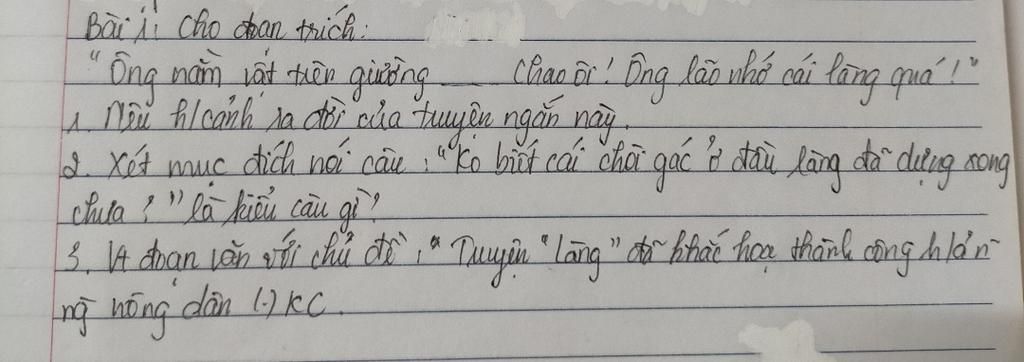 Bài 1: Cho đoạn trích:
"Ông nằm vật trên giường ___ Chao ôi! Ông lão nhớ cái làng quá!"
1. Nêu h/cảnh ra đời của truyện ngắn này.
2. Xét mục đích nói câu: "Ko biết cái chòi gác ở đầu làng đã dựng xong
chưa?" là kiểu câu gì?
3. Vt đoạn văn với chủ đề: "Truyện "Làng" đã khắc hoạ thành công h/ản
ng nông dân (-) KC.